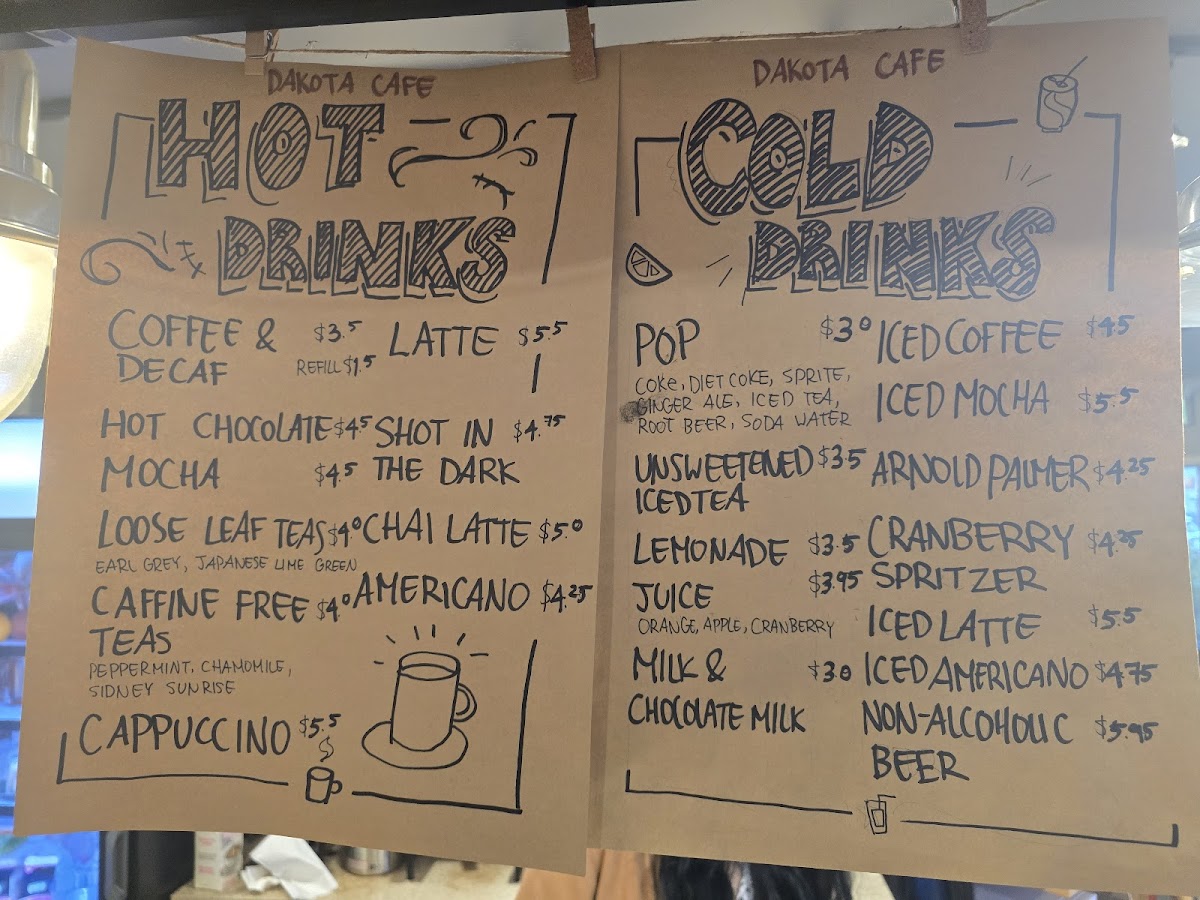 DAKOTA CAFE
HOT
DRINKS
COFFEE & $3.5
DECAF REFILL $1.5
HOT CHOCOLATE $4.5
MOCHA $4.5
LOOSE LEAF TEAS $4.0
EARL GREY, JAPANESE LIME GREEN
CAFFINE FREE $4.0
TEAS
PEPPERMINT, CHAMOMILE,
SIDNEY SUNRISE
CAPPUCCINO $5.5
LATTE $5.5
SHOT IN $4.75
THE DARK
CHAI LATTE $5.0
AMERICANO $4.25
DAKOTA CAFE
COLD
DRINKS
POP $3.0
COKE, DIET COKE, SPRITE,
GINGER ALE, ICED TEA,
ROOT BEER, SODA WATER
UNSWEETENED $3.5
ICED TEA
LEMONADE $3.5
JUICE $3.95
ORANGE, APPLE, CRANBERRY
MILK & $3.0
CHOCOLATE MILK
ICED COFFEE $4.5
ICED MOCHA $5.5
ARNOLD PALMER $4.25
CRANBERRY $4.25
SPRITZER
ICED LATTE $5.5
ICED AMERICANO $4.75
NON-ALCOHOLIC $5.95
BEER